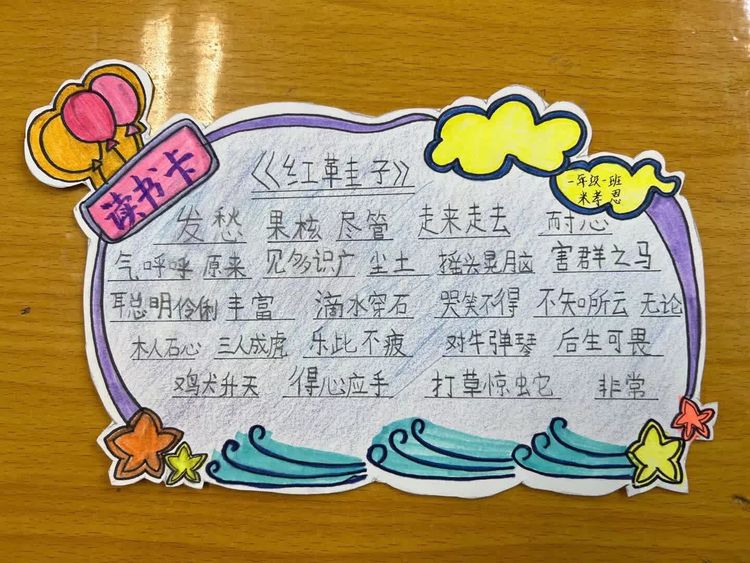 读书卡
《红革圭子》
一年级一班
米孝恩
发愁 果核 尽管 走来走去 耐心
气呼呼 原来 见多识广 尘土 摇头晃脑 害群之马
耳聪明伶俐 丰富 滴水穿石 哭笑不得 不知所云 无论
木人石心 三人成虎 乐此不疲 对牛弹琴 后生可畏
鸡犬升天 得心应手 打草惊蛇 非常